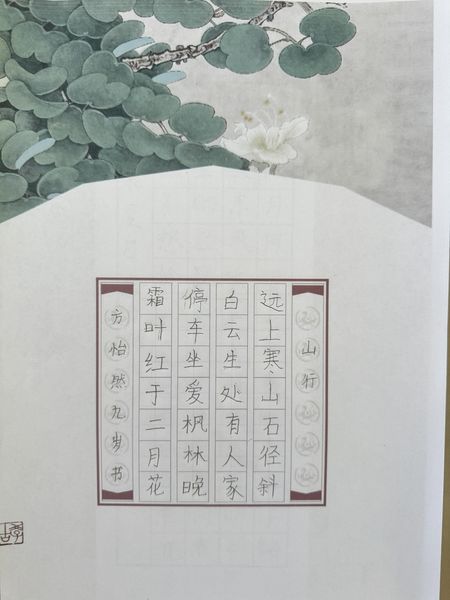 山行
远上寒山石径斜
白云生处有人家
停车坐爱枫林晚
霜叶红于二月花
方怡然九岁书